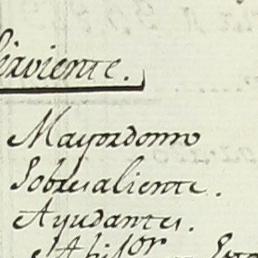 Sirviente.
Mayordomo
Sobresaliente.
Ayudantes.